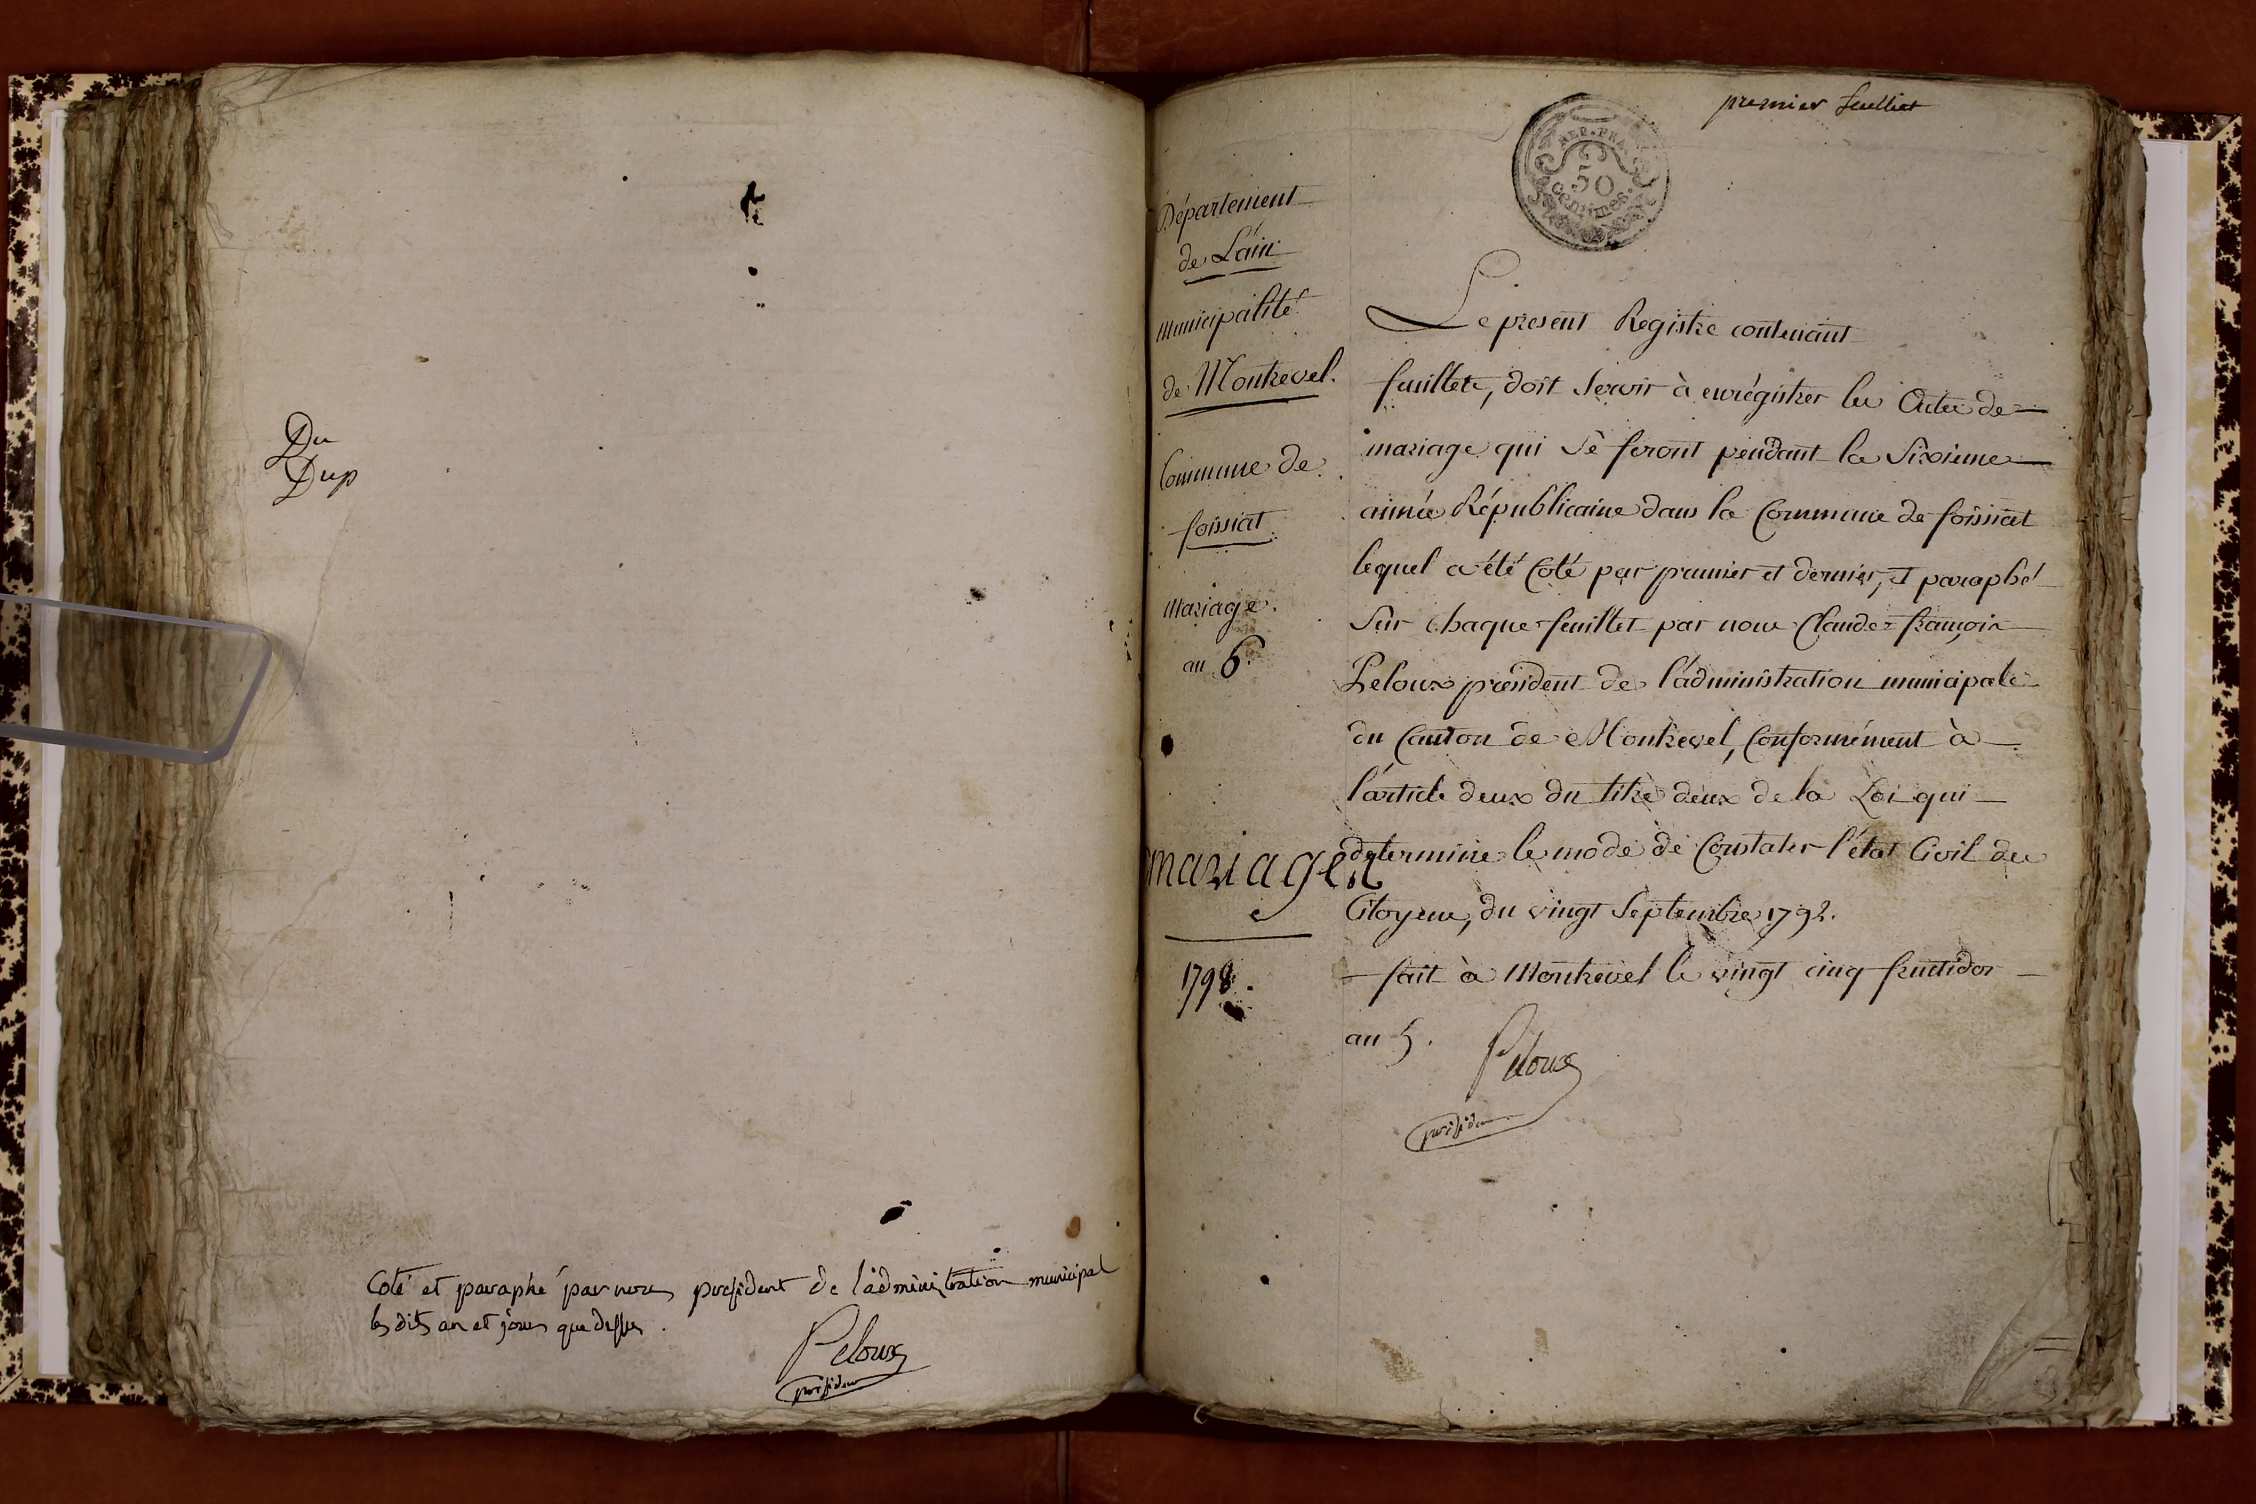 Du
Dup
Coté et paraphé par nous president de l'administration municipal
les dits an et jour que dessus.
Peloux
président
premier feuillet
REP. FRA.
50
centimes.
Département
de L'ain
Municipalité
de Montrevel.
Commune de
foissiat
Mariage.
an 6.
mariages
1798.
Le present Registre contenant
feuillets, doit servir à enrégistrer les Actes de
mariage qui se feront pendant la sixieme
année Républicaine dans la Commune de foissiat
lequel a été Coté par premier et dernier, et paraphé
sur chaque feuillet par nous Claude=françois
Peloux président de l'administration municipale
du Canton de Montrevel, Conformément à
l'article deux du titre deux de la Loi qui
determine le mode de Constater l'état Civil des
Citoyens, du vingt Septembre 1792.
fait à Montrevel le vingt cinq fructidor
an 5.
Peloux
président